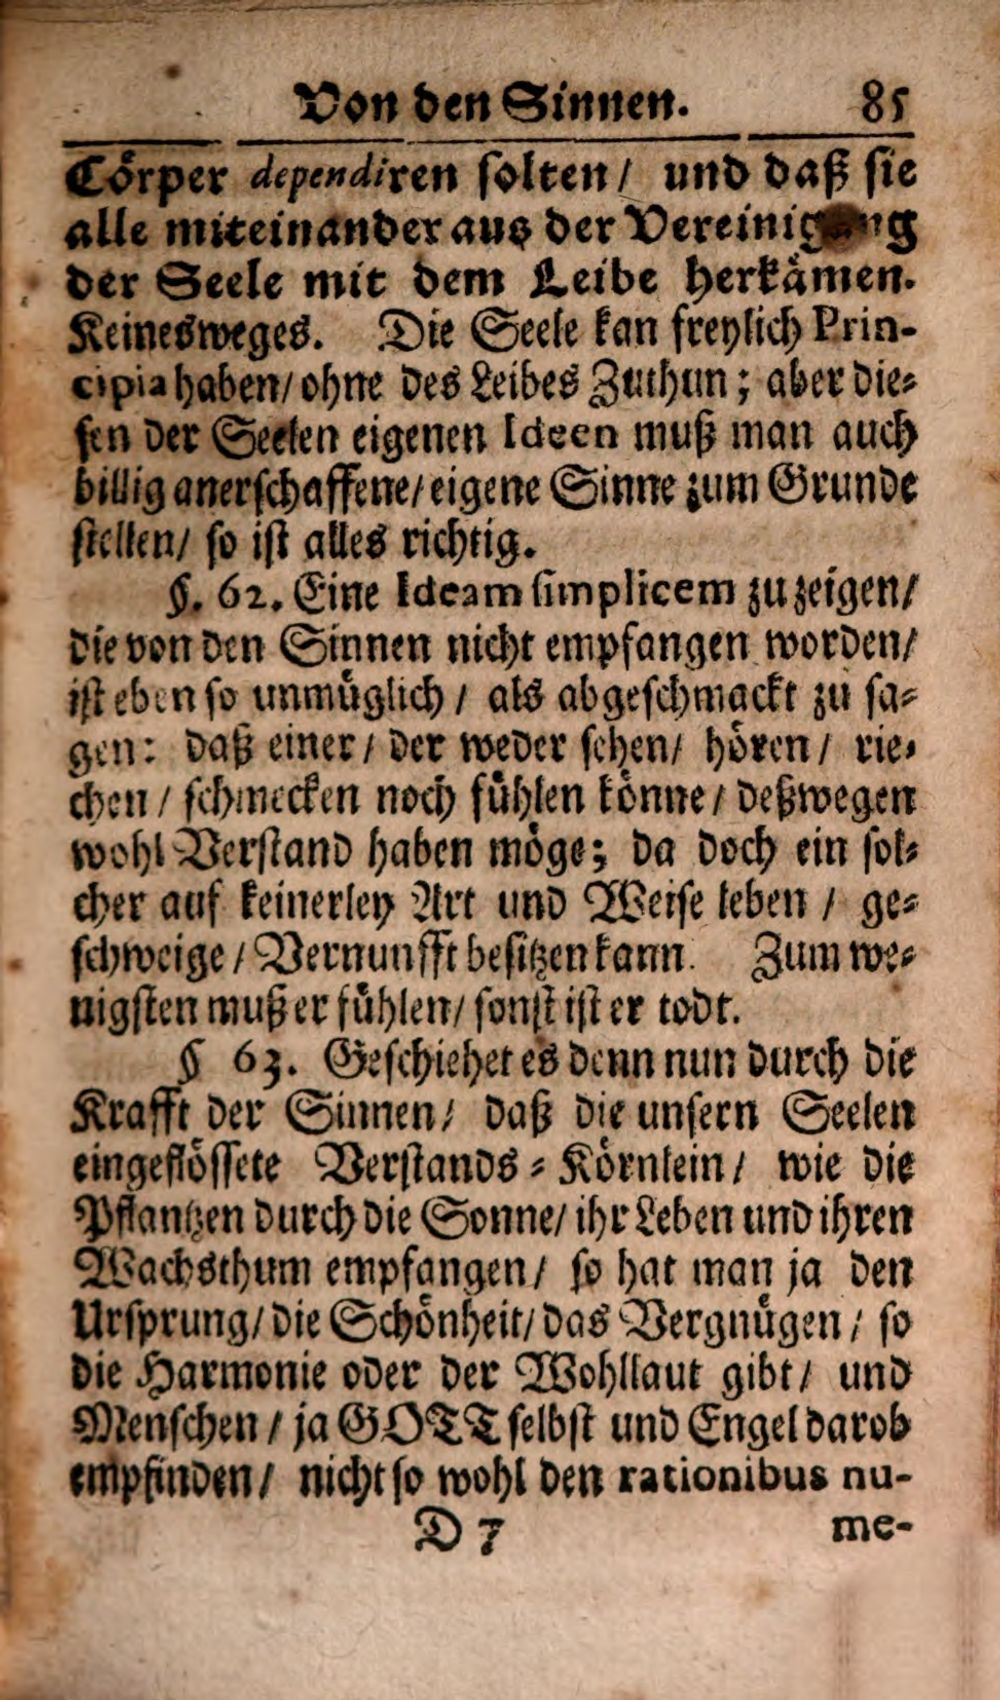 Von den Sinnen. 85
Cörper dependiren solten / und daß sie
alle miteinander aus der Vereinigung
der Seele mit dem Leibe herkämen.
Keinesweges. Die Seele kan freylich Prin-
cipia haben / ohne des Leibes Zuthun; aber die-
sen der Seelen eigenen Ideen muß man auch
billig anerschaffene / eigene Sinne zum Grunde
stellen / so ist alles richtig.
§. 62. Eine Ideam simplicem zu zeigen /
die von den Sinnen nicht empfangen worden /
ist eben so unmüglich / als abgeschmackt zu sa-
gen: daß einer / der weder sehen / hören / rie-
chen / schmecken noch fühlen könne / deßwegen
wohl Verstand haben möge; da doch ein sol-
cher auf keinerley Art und Weise leben / ge-
schweige / Vernunfft besitzen kann. Zum we-
nigsten muß er fühlen / sonst ist er todt.
§ 63. Geschiehet es denn nun durch die
Krafft der Sinnen / daß die unsern Seelen
eingeflössete Verstands-Körnlein / wie die
Pflantzen durch die Sonne / ihr Leben und ihren
Wachsthum empfangen / so hat man ja den
Ursprung / die Schönheit / das Vergnügen / so
die Harmonie oder der Wohllaut gibt / und
Menschen / ja GOTT selbst und Engel darob
empfinden / nicht so wohl den rationibus nu-
D 7 me-